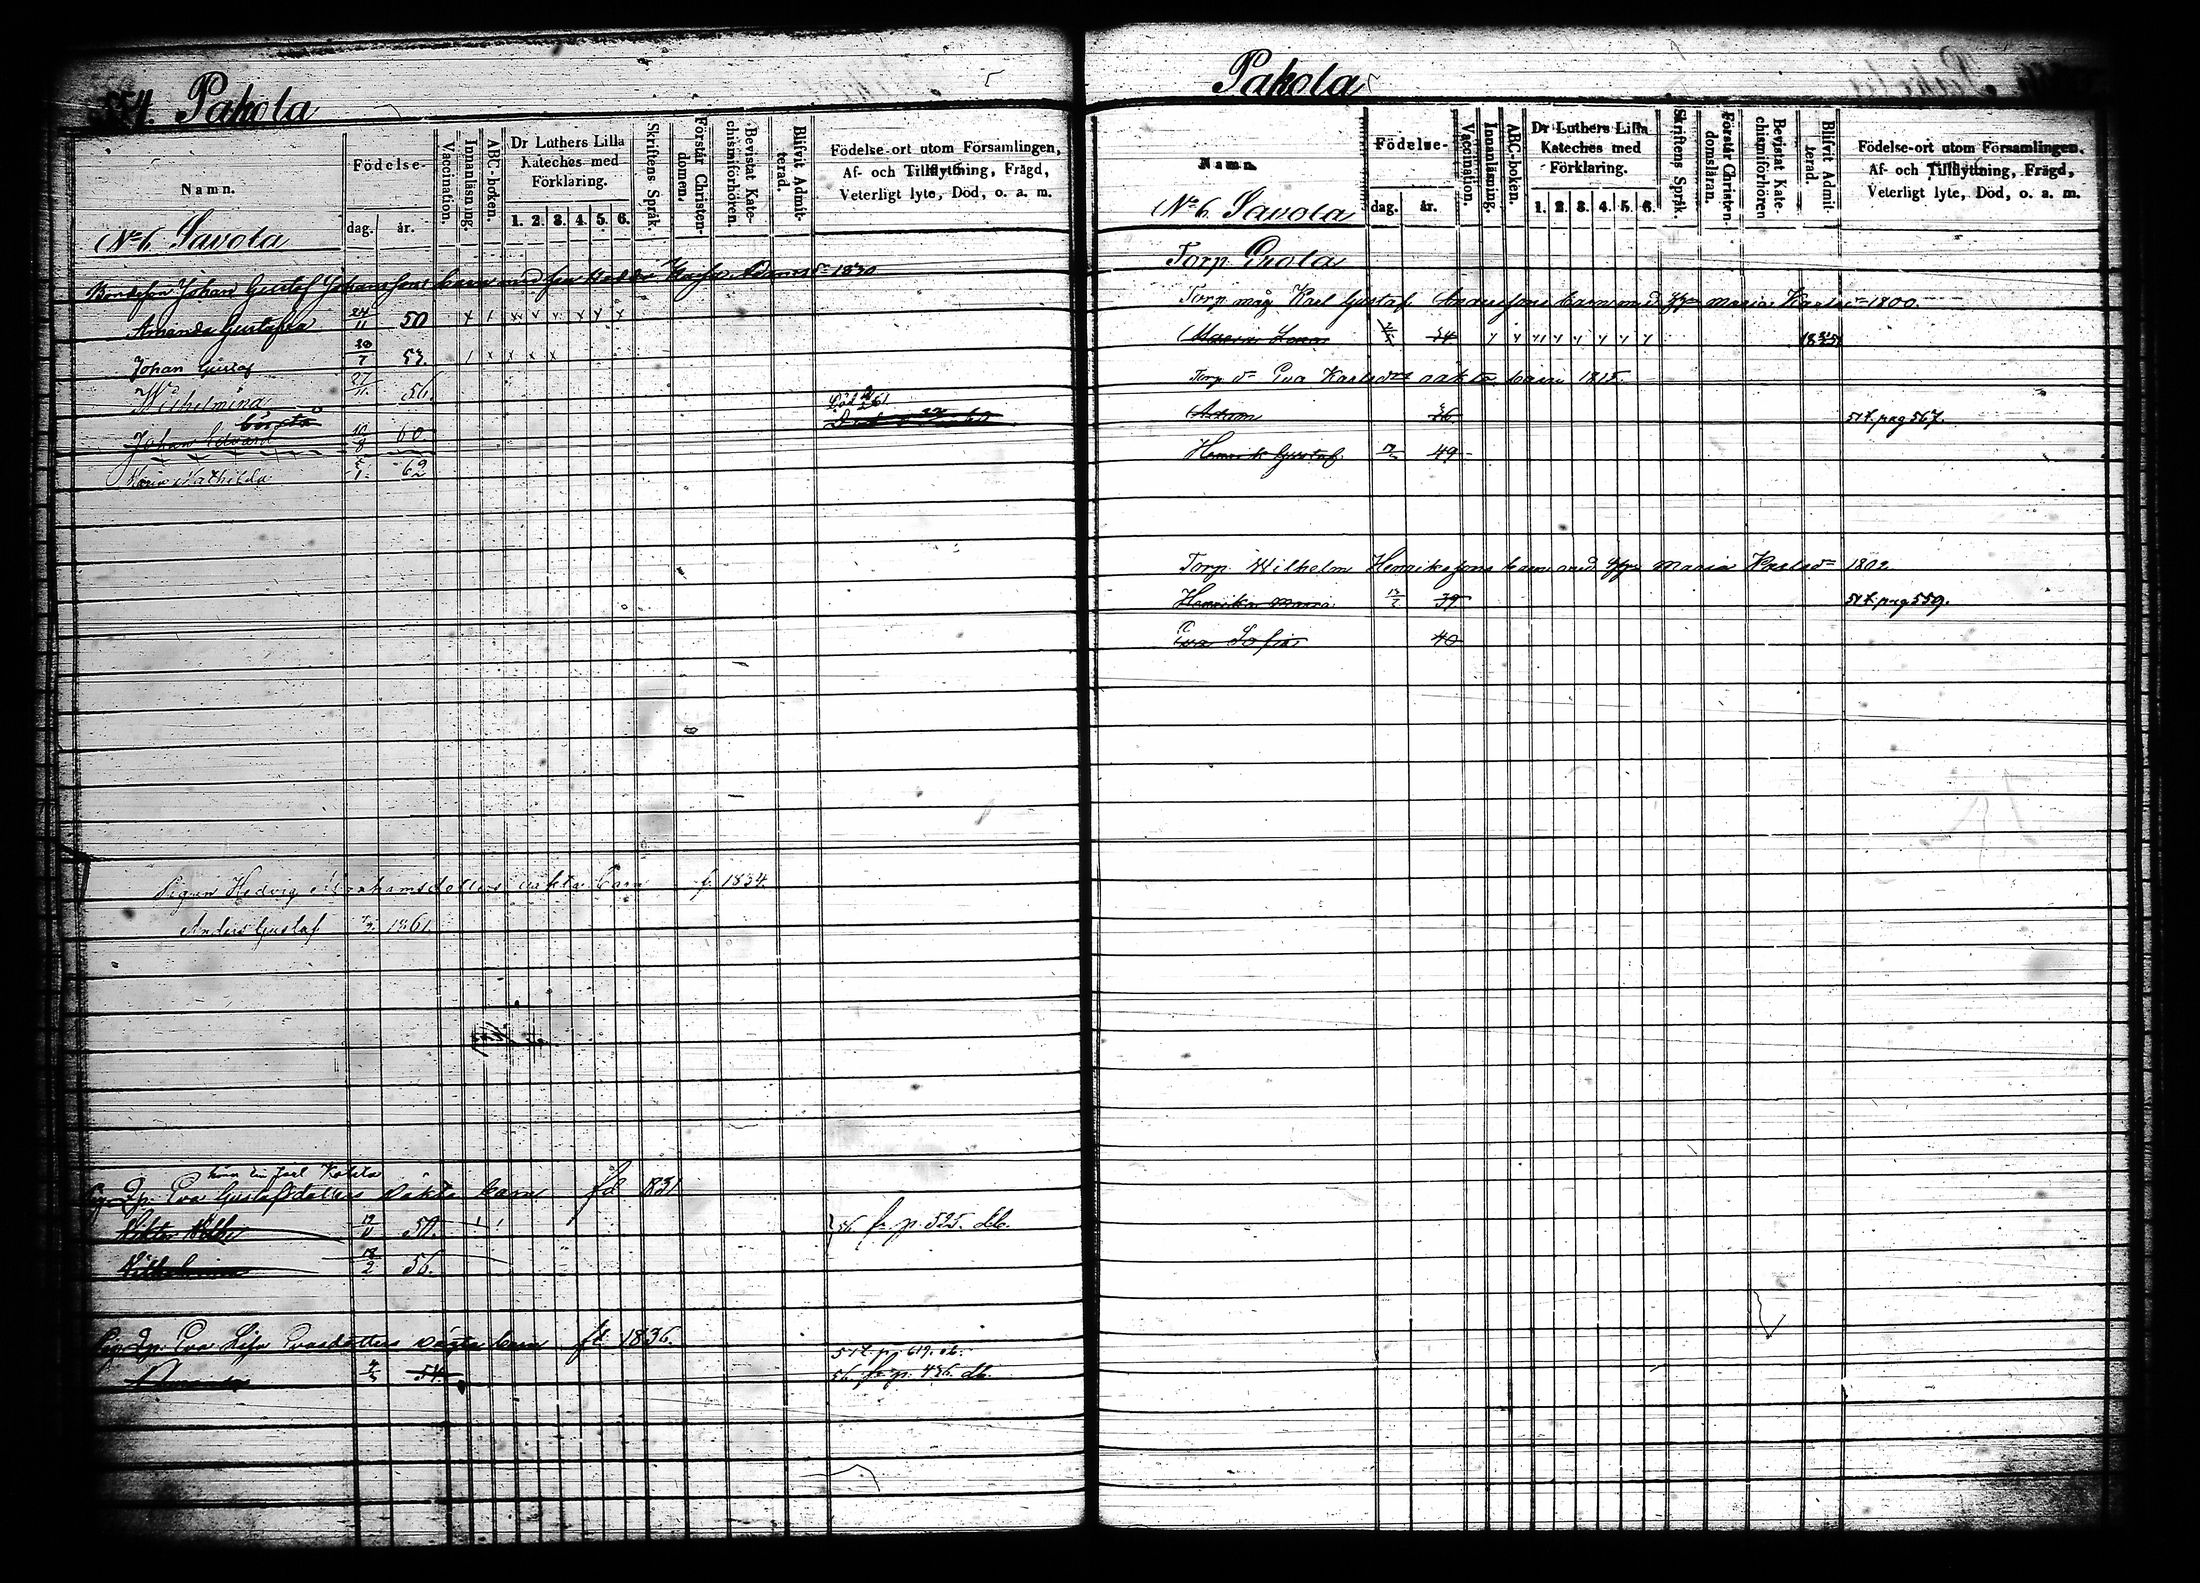 554. Pakola
Namn.
Födelse-
dag. år.
Vaccination.
Innanläsning.
ABC-boken.
Dr Luthers Lilla
Kateches med
Förklaring.
1. 2. 3. 4. 5. 6.
Skriftens Språk.
Förstår Christen-
domen.
Bevistat Kate-
chismiförhören.
Blifvit Admit-
terad.
Födelse-ort utom Församlingen,
Af- och Tillflyttning, Frägd,
Veterligt lyte, Död, o. a. m.
No 6. Savola
Bondeson Johan Gustaf Johanssons barn med sin Hustru Adamsdr 1830
Amanda Gustafva 24/11 50
Johan Gustaf 7 53.
Wilhelmina 27/11 56. Död 61
Johan Edvard 10/8 60
Maria Mathilda 1 62
Pigan Hedvig Abrahamsdotters oäkta barn f. 1834
Anders Gustaf 1861.
Eva Gustafsdotters oäkta barn fd 1831
50. 56 fr. p. 525. db.
Vilhelmina 18/2 56.
Eva Lisa Evasdotters oägta barn fd 1836.
57 t. p 619. db.
Amanda 54 56. fr. p. 436. db.
Pakola
Namn.
Födelse-
dag. år.
Vaccination.
Innanläsning.
ABC-boken.
Dr Luthers Lilla
Kateches med
Förklaring.
1. 2. 3. 4. 5. 6.
Skriftens Språk.
Förstår Christen-
domsläran.
Bevistat Kate-
chismiförhören
Blifvit Admit-
terad.
Födelse-ort utom Församlingen.
Af- och Tillflyttning, Frägd,
Veterligt lyte, Död, o. a. m.
No 6. Savola
Torp
Torp. måg Karl Gustaf Anderssons barn med Maria Karlsdr 1800.
Maria Lovisa 34
Torp. dr Eva Karlsdrs oäkta barn 1815.
Adam 36. 51 t. pag 567.
Henrik Gustaf 49
Torp. Wilhelm Henrikssons barn med Maria Karlsdr 1802.
Henrika Maria 39 51 t. pag 559.
Eva Sofia 40